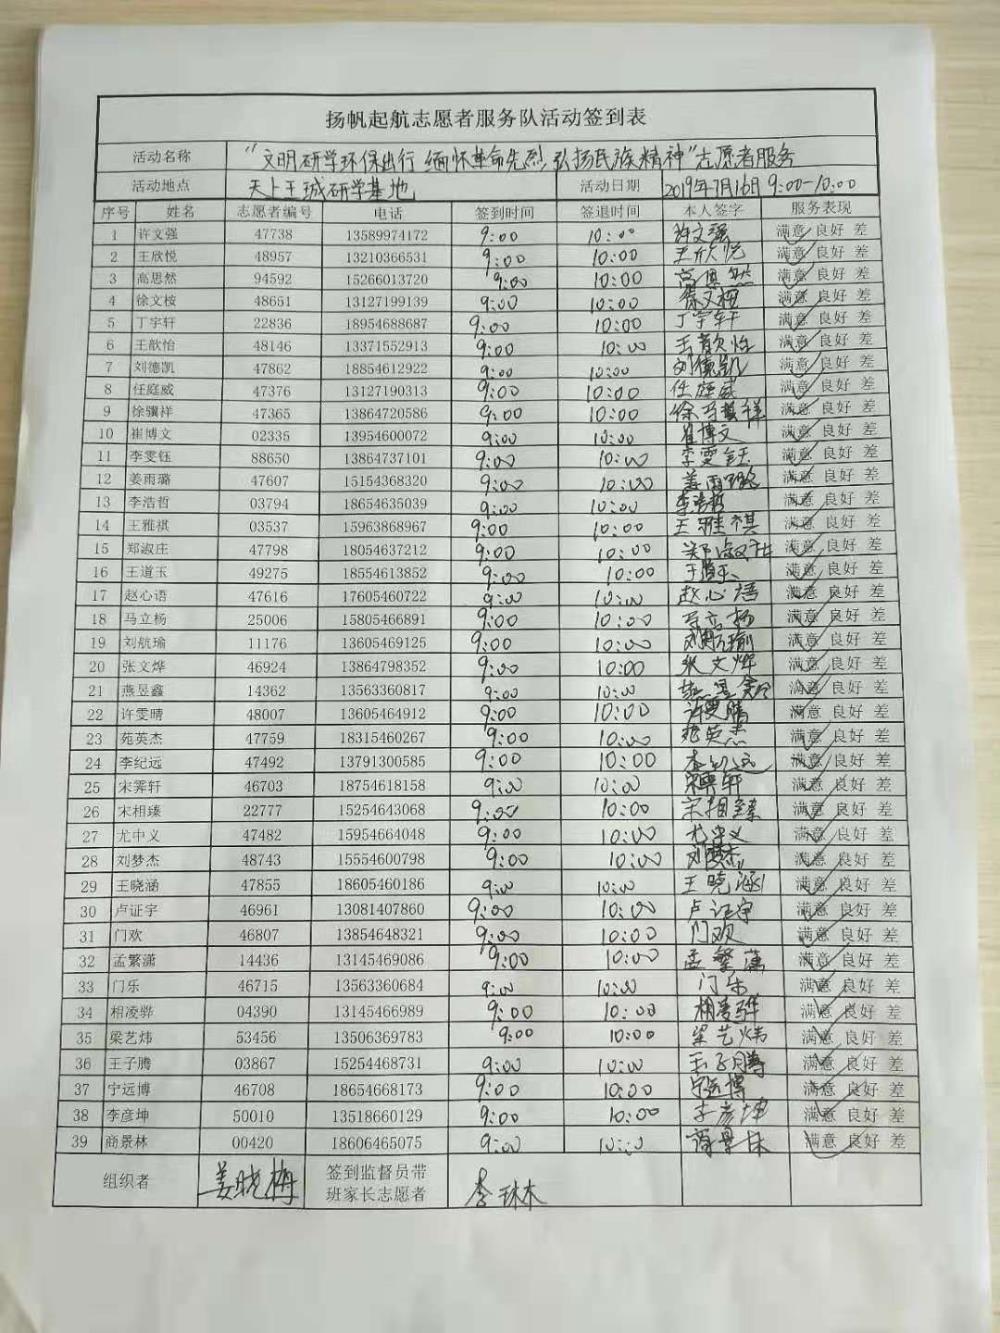 扬帆起航志愿者服务队活动签到表
活动名称 “文明研学环保出行 缅怀革命先烈,弘扬民族精神”志愿者服务
活动地点 天上王城研学基地 活动日期 2019年7月16日 9:00-10:00
序号 姓名 志愿者编号 电话 签到时间 签退时间 本人签字 服务表现
1 许文强 47738 13589974172 9:00 10:00 许文强 满意 良好 差
2 王欣悦 48957 13210366531 9:00 10:00 王欣悦 满意 良好 差
3 高思然 94592 15266013720 9:00 10:00 高思然 满意 良好 差
4 徐文桉 48651 13127199139 9:00 10:00 徐文桉 满意 良好 差
5 丁宇轩 22836 18954688687 9:00 10:00 丁宇轩 满意 良好 差
6 王歆怡 48146 13371552913 9:00 10:00 王歆怡 满意 良好 差
7 刘德凯 47862 18854612922 9:00 10:00 刘德凯 满意 良好 差
8 任庭威 47376 13127190313 9:00 10:00 任庭威 满意 良好 差
9 徐骥祥 47365 13864720586 9:00 10:00 徐骥祥 满意 良好 差
10 崔博文 02335 13954600072 9:00 10:00 崔博文 满意 良好 差
11 李雯钰 88650 13864737101 9:00 10:00 李雯钰 满意 良好 差
12 姜雨璐 47607 15154368320 9:00 10:00 姜雨璐 满意 良好 差
13 李浩哲 03794 18654635039 9:00 10:00 李浩哲 满意 良好 差
14 王雅祺 03537 15963868967 9:00 10:00 王雅祺 满意 良好 差
15 郑淑庄 47798 18054637212 9:00 10:00 郑淑庄 满意 良好 差
16 王道玉 49275 18554613852 9:00 10:00 王道玉 满意 良好 差
17 赵心语 47616 17605460722 9:00 10:00 赵心语 满意 良好 差
18 马立杨 25006 15805466891 9:00 10:00 马立杨 满意 良好 差
19 刘航瑜 11176 13605469125 9:00 10:00 刘航瑜 满意 良好 差
20 张文烨 46924 13864798352 9:00 10:00 张文烨 满意 良好 差
21 燕昱鑫 14362 13563360817 9:00 10:00 燕昱鑫 满意 良好 差
22 许雯晴 48007 13605464912 9:00 10:00 许雯晴 满意 良好 差
23 苑英杰 47759 18315460267 9:00 10:00 苑英杰 满意 良好 差
24 李纪远 47492 13791300585 9:00 10:00 李纪远 满意 良好 差
25 宋霁轩 46703 18754618158 9:00 10:00 宋霁轩 满意 良好 差
26 宋相臻 22777 15254643068 9:00 10:00 宋相臻 满意 良好 差
27 尤中义 47482 15954664048 9:00 10:00 尤中义 满意 良好 差
28 刘梦杰 48743 15554600798 9:00 10:00 刘梦杰 满意 良好 差
29 王晓涵 47855 18605460186 9:00 10:00 王晓涵 满意 良好 差
30 卢证宇 46961 13081407860 9:00 10:00 卢证宇 满意 良好 差
31 门欢 46807 13854648321 9:00 10:00 门欢 满意 良好 差
32 孟繁潇 14436 13145469086 9:00 10:00 孟繁潇 满意 良好 差
33 门乐 46715 13563360684 9:00 10:00 门乐 满意 良好 差
34 相凌骅 04390 13145466989 9:00 10:00 相凌骅 满意 良好 差
35 梁艺炜 53456 13506369783 9:00 10:00 梁艺炜 满意 良好 差
36 王子腾 03867 15254468731 9:00 10:00 王子腾 满意 良好 差
37 宁远博 46708 18654668173 9:00 10:00 宁远博 满意 良好 差
38 李彦坤 50010 13518660129 9:00 10:00 李彦坤 满意 良好 差
39 商景林 00420 18606465075 9:00 10:00 商景林 满意 良好 差
组织者 姜晓梅 签到监督员带
班家长志愿者 李琳木